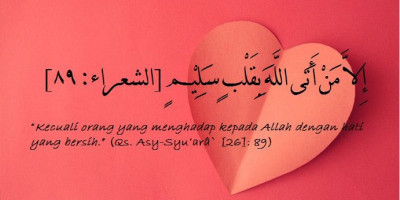 إِلاَّ مَنْ أَتَى اللَّهَ بِقَلْبٍ سَلِيْمٍ [الشعراء: ٨٩]
"Kecuali orang yang menghadap kepada Allah dengan hati
yang bersih." (Qs. Asy-Syu'arâ` [26]: 89)